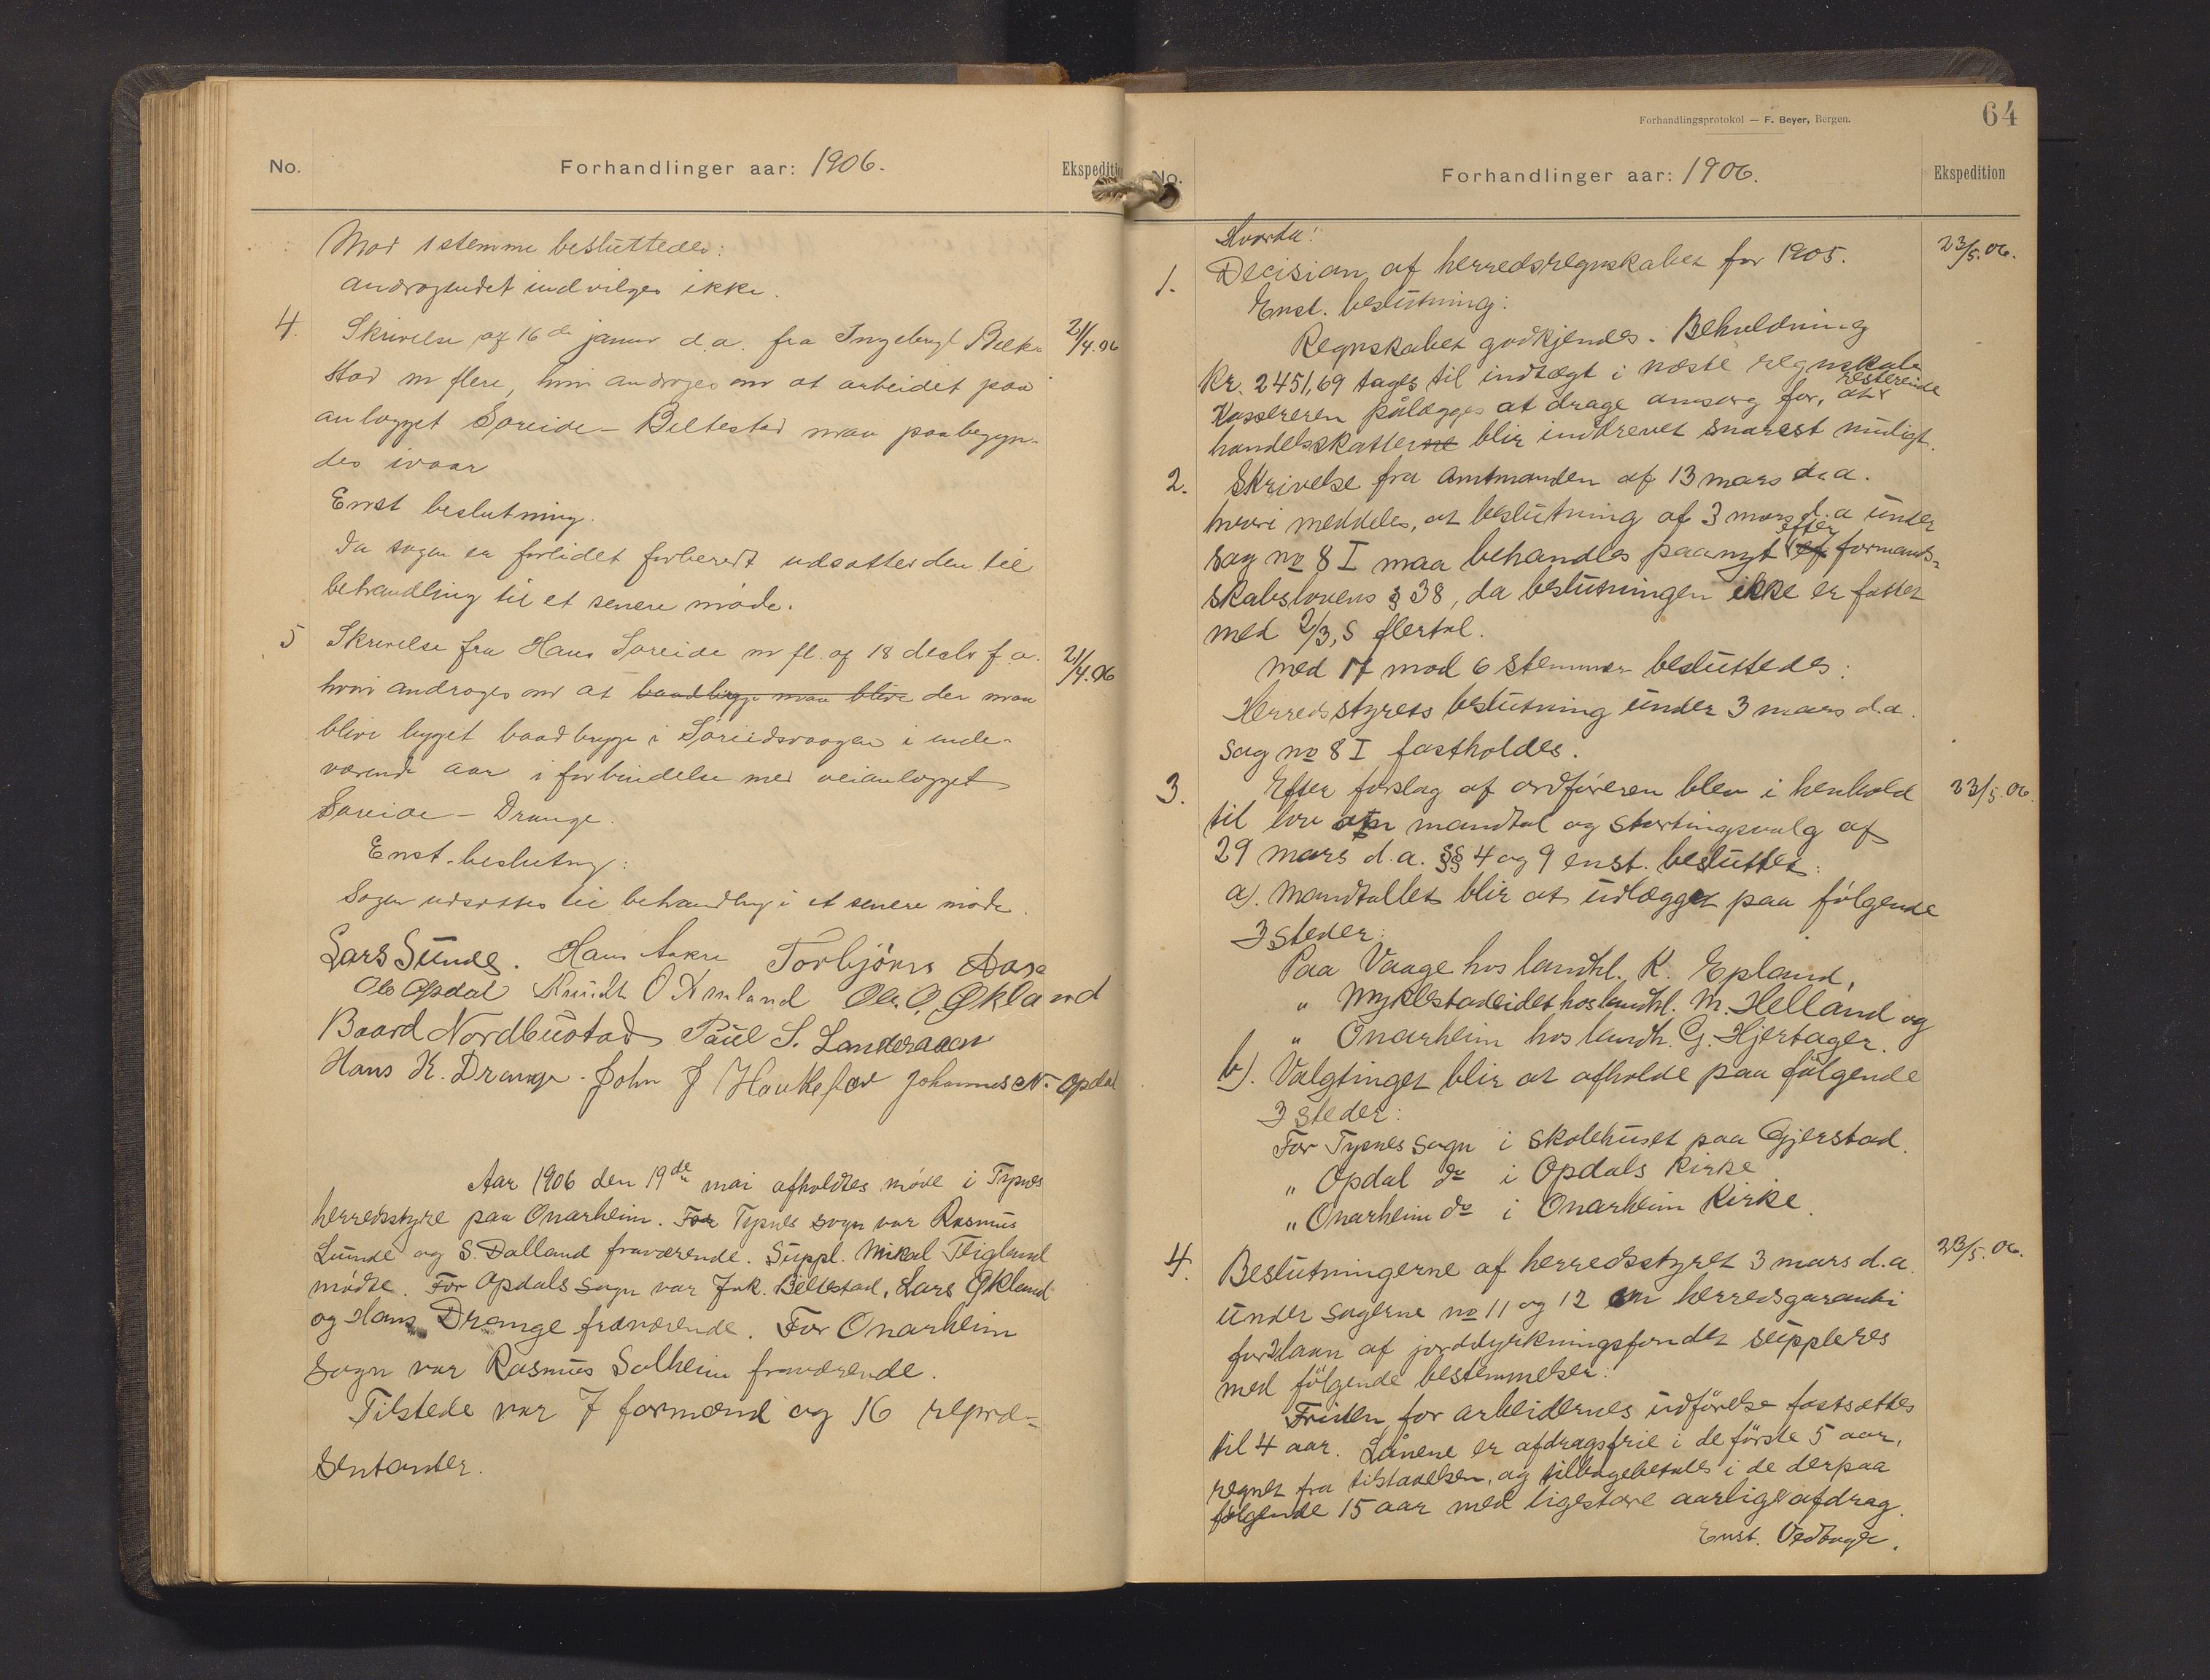 No. Forhandlinger aar: 1906. Ekspediti
Mod 1 stemme besluttedes:
andragendet indvilges ikke.
4. Skrivelse af 16de januar d.a. fra Ingebrigt Belte- 21/4.06
stad m flere, hvori andrages om at arbeidet paa
anlægget Søreide - Beltestad maa paabegyn-
des ivaar
Enst beslutning.
Da sagen er forlidet forberedt udsættes den til
behandling til et senere møde.
5 Skrivelse fra Hans Søreide m fl. af 18 decbr f.a. 21/4.06
hvori andrages om at baadbrygge maa blive der maa
blive bygget baadbrygge i Søreidsvaagen i inde-
værende aar i forbindelse med veianlægget
Søreide - Drange.
Enst. beslutng:
Sagen udsættes til behandling i et senere møde.
Lars Sunde. Hans Torbjørn Aase
Ole Opdal Knudt O Ole O. Økland
Baard Nordbustad Paul S. Landeraaen
Hans K. Drange. John J Haukefær Johannes N. Opdal
Aar 1906 den 19de mai afholdtes møde i Tysnes
herredsstyre paa Onarheim. For Tysnes sogn var Rasmus
Lunde og S. Dalland fraværende. Suppl. Mikal Teigland
mødte. For Opdals sogn var Jak. Beltestad, Lars Økland
og Hans Drange fraværende. For Onarheim
sogn var Rasmus Solheim fraværende.
Tilstede var 7 formænd og 16 repræ-
sentanter.
Forhandlingsprotokol — F. Beyer, Bergen. 64
No. Forhandlinger aar: 1906. Ekspedition
Hvorda:
1. Decision af herredsregnskabet for 1905. 23/5.06.
Enst. beslutning:
Regnskabet godkjendes. Beholdning
Kr. 2451,69 tages til indtægt i næste regnskab.
Kassereren pålægges at drage omsorg for, at resterende
handelsskatterne blir indkrevet snarest muligt.
2. Skrivelse fra amtmanden af 13 mars d.a.
hvori meddeles, at beslutning af 3 mars d.a under
sag no 8 I maa behandles paanyt ef efter formand-
skabslovens § 38, da beslutningen ikke er fattet
med 2/3,s flertal.
Med 17 mod 6 stemmer besluttedes:
Herredsstyrets beslutning under 3 mars d.a.
sag no 8 I fastholdes.
3. Efter forslag af ordføreren blev i henhold 23/5.06.
til lov om mandtal og stortingsvalg af
29 mars d.a. §§ 4 og 9 enst. besluttet:
a). Mandtallet blir at udlægget paa følgende
3 steder:
Paa Vaage hos landhl. K. Epland,
" Myklestadeidet hos landhl. M. Helland og
" Onarheim hos landh. G. Hjertager.
b). Valgtinget blir at afholde paa følgende
3 steder:
For Tysnes sogn i skolehuset paa Gjerstad.
" Opdal do i Opdals Kirke
" Onarheim do i Onarheim Kirke.
4. Beslutningerne af herredsstyret 3 mars d.a. 23/5.06.
under sagerne no 11 og 12 om herredsgaranti
for 2 laan af jorddyrkningsfondet suppleres
med følgende bestemmelser:
Fristen for arbeidernes udførelse fastsættes
til 4 aar. Lånene er afdragsfrie i de første 5 aar,
regnet fra tilstaaelsen, og tilbagebetales i de derpaa
følgende 15 aar med ligestore aarlige afdrag.
Enst. Vedtaget.